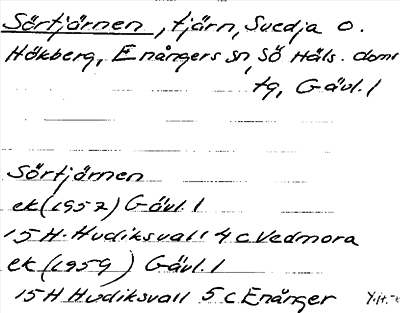 Sörtjärnen, tjärn, Svedja o.
Hökberg, Enångers sn, Sö Häls. doms
tg, Gävl. l
Sörtjärnen
ek (1957) Gävl. l
15 H Hudiksvall 4 c Vedmora
ek (1959) Gävl. l
15 H Hudiksvall 5 c Enånger